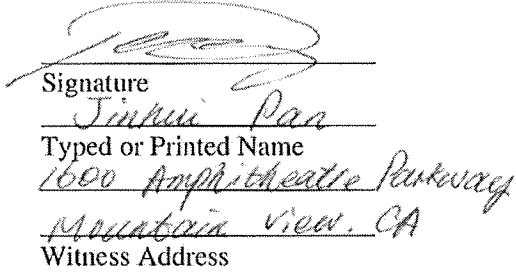 Signature
Jinhui Pan
Typed or Printed Name
1600 Amphitheatre Parkway
Mountain View. CA
Witness Address